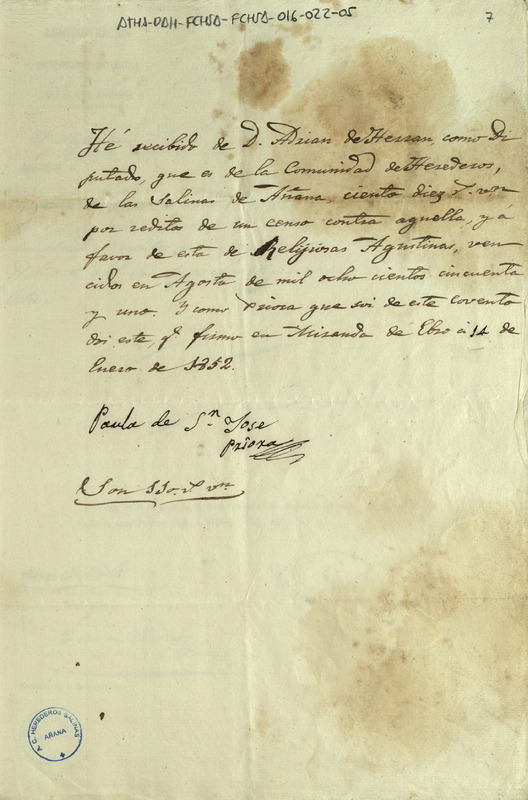 ATHA-DAH-FCHSA-FCHSA-016-022-05
7
Hé recibido de D. Adrian de Herran, como Di
putado, que es de la Comunidad de Herederos,
de las Salinas de Añana, ciento diez r.s von
por reditos de un censo contra aquella, y á
favor de esta de Religiosas Agustinas, ven
cidos en Agosto de mil ocho cientos cincuenta
y uno. Y como Priora que soi de este covento
doi este, q.e firmo en Miranda de Ebro á 14 de
Enero de 1852.
Paula de S.n Jose
Priora
Son 110. r.s von
A.C. HEREDEROS SALINAS
AÑANA